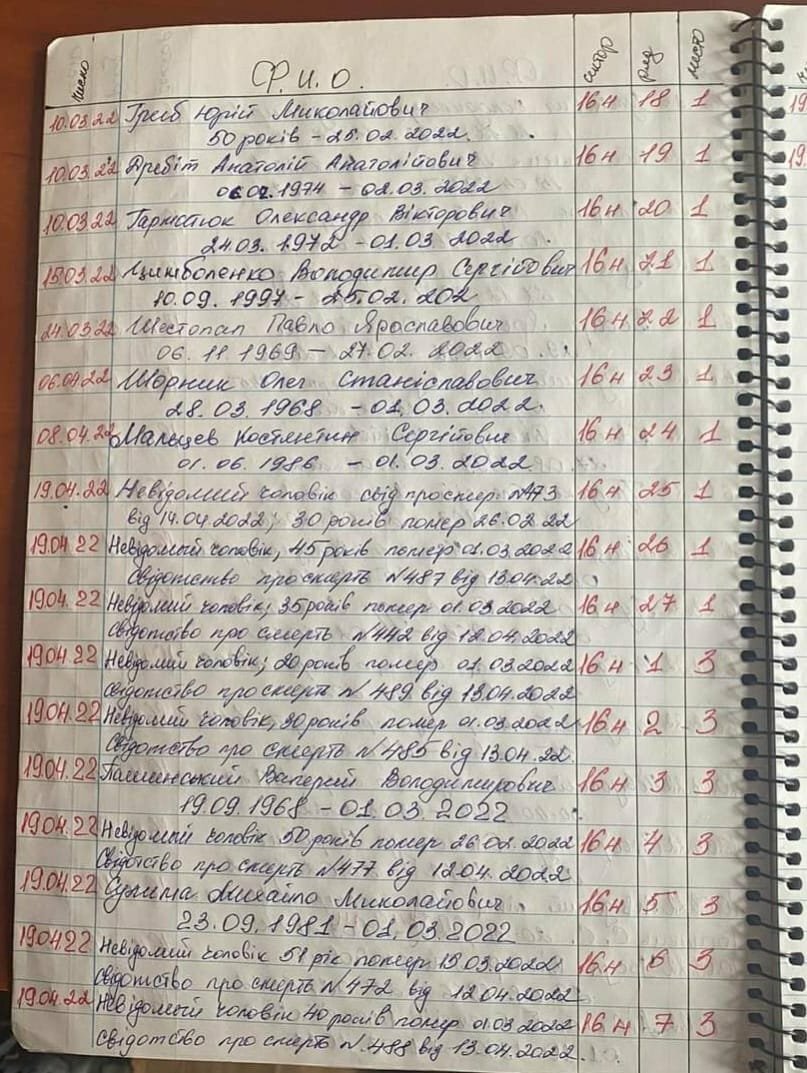 Число Ф.И.О. сектор ряд место
10.03.22 Греб Юрій Миколайович 16н 18 1
50 років - 25.02.2022.
10.03.22 Дребіт Анатолій Анатолійович 16н 19 1
06.02.1974 - 02.03.2022
10.03.22 Гарматюк Олександр Вікторович 16н 20 1
24.03.1972 - 01.03 2022.
15.03.22 Цимболенко Володимир Сергійович 16н 21 1
10.09.1997 - 25.02.202
24.03.22 Шестопал Павло Ярославович 16н 22 1
06.11 1969 - 27.02.2022.
06.04.22 Шорник Олег Станіславович 16н 23 1
28.03.1968 - 01.03.2022.
08.04.22 Мальцев Костянтин Сергійович 16н 24 1
01.06.1986 - 01.03.2022
19.04.22 Невідомий чоловік свід про смер. №473 16н 25 1
від 14.04.2022; 30 років помер 26.02.22
19.04 22 Невідомый чоловік, 45 років помер 01.03.2022 16н 26 1
Свідотство про смерть №487 від 13.04.22
19.04.22 Невідомий чоловік; 35 років помер 01.03.2022 16н 27 1
свідотство про смерть №442 від 12.04.2022
19.04 22 Невідомий чоловік; 20 років помер 01.03.2022 16н 1 3
свідотство про смерть №489 від 13.04.2022
19.04.22 Невідомий чоловік, 30 років помер 01.03.2022 16н 2 3
Свідотство про смерть №485 від 13.04.22.
19.04.22 Валерий Володимирович 16н 3 3
19.09.1968 - 01.03.2022
19.04.22 Невідомий чоловік 50 років помер 26.02.2022 16н 4 3
Свідотство про смерть №477 від 12.04.2022
19.04.22 Сулима Михайло Миколайович. 16н 5 3
23.09.1981 - 01.03.2022
19.04 22 Невідомий чоловік 51 рік помер 13.03.2022 16н 6 3
свідотство про смерть №472 від 12.04.2022
19.04.22 Невідомый чоловік 40 років помер 01.03 2022 16н 7 3
свідотство про смерть №488 від 13.04.2022.